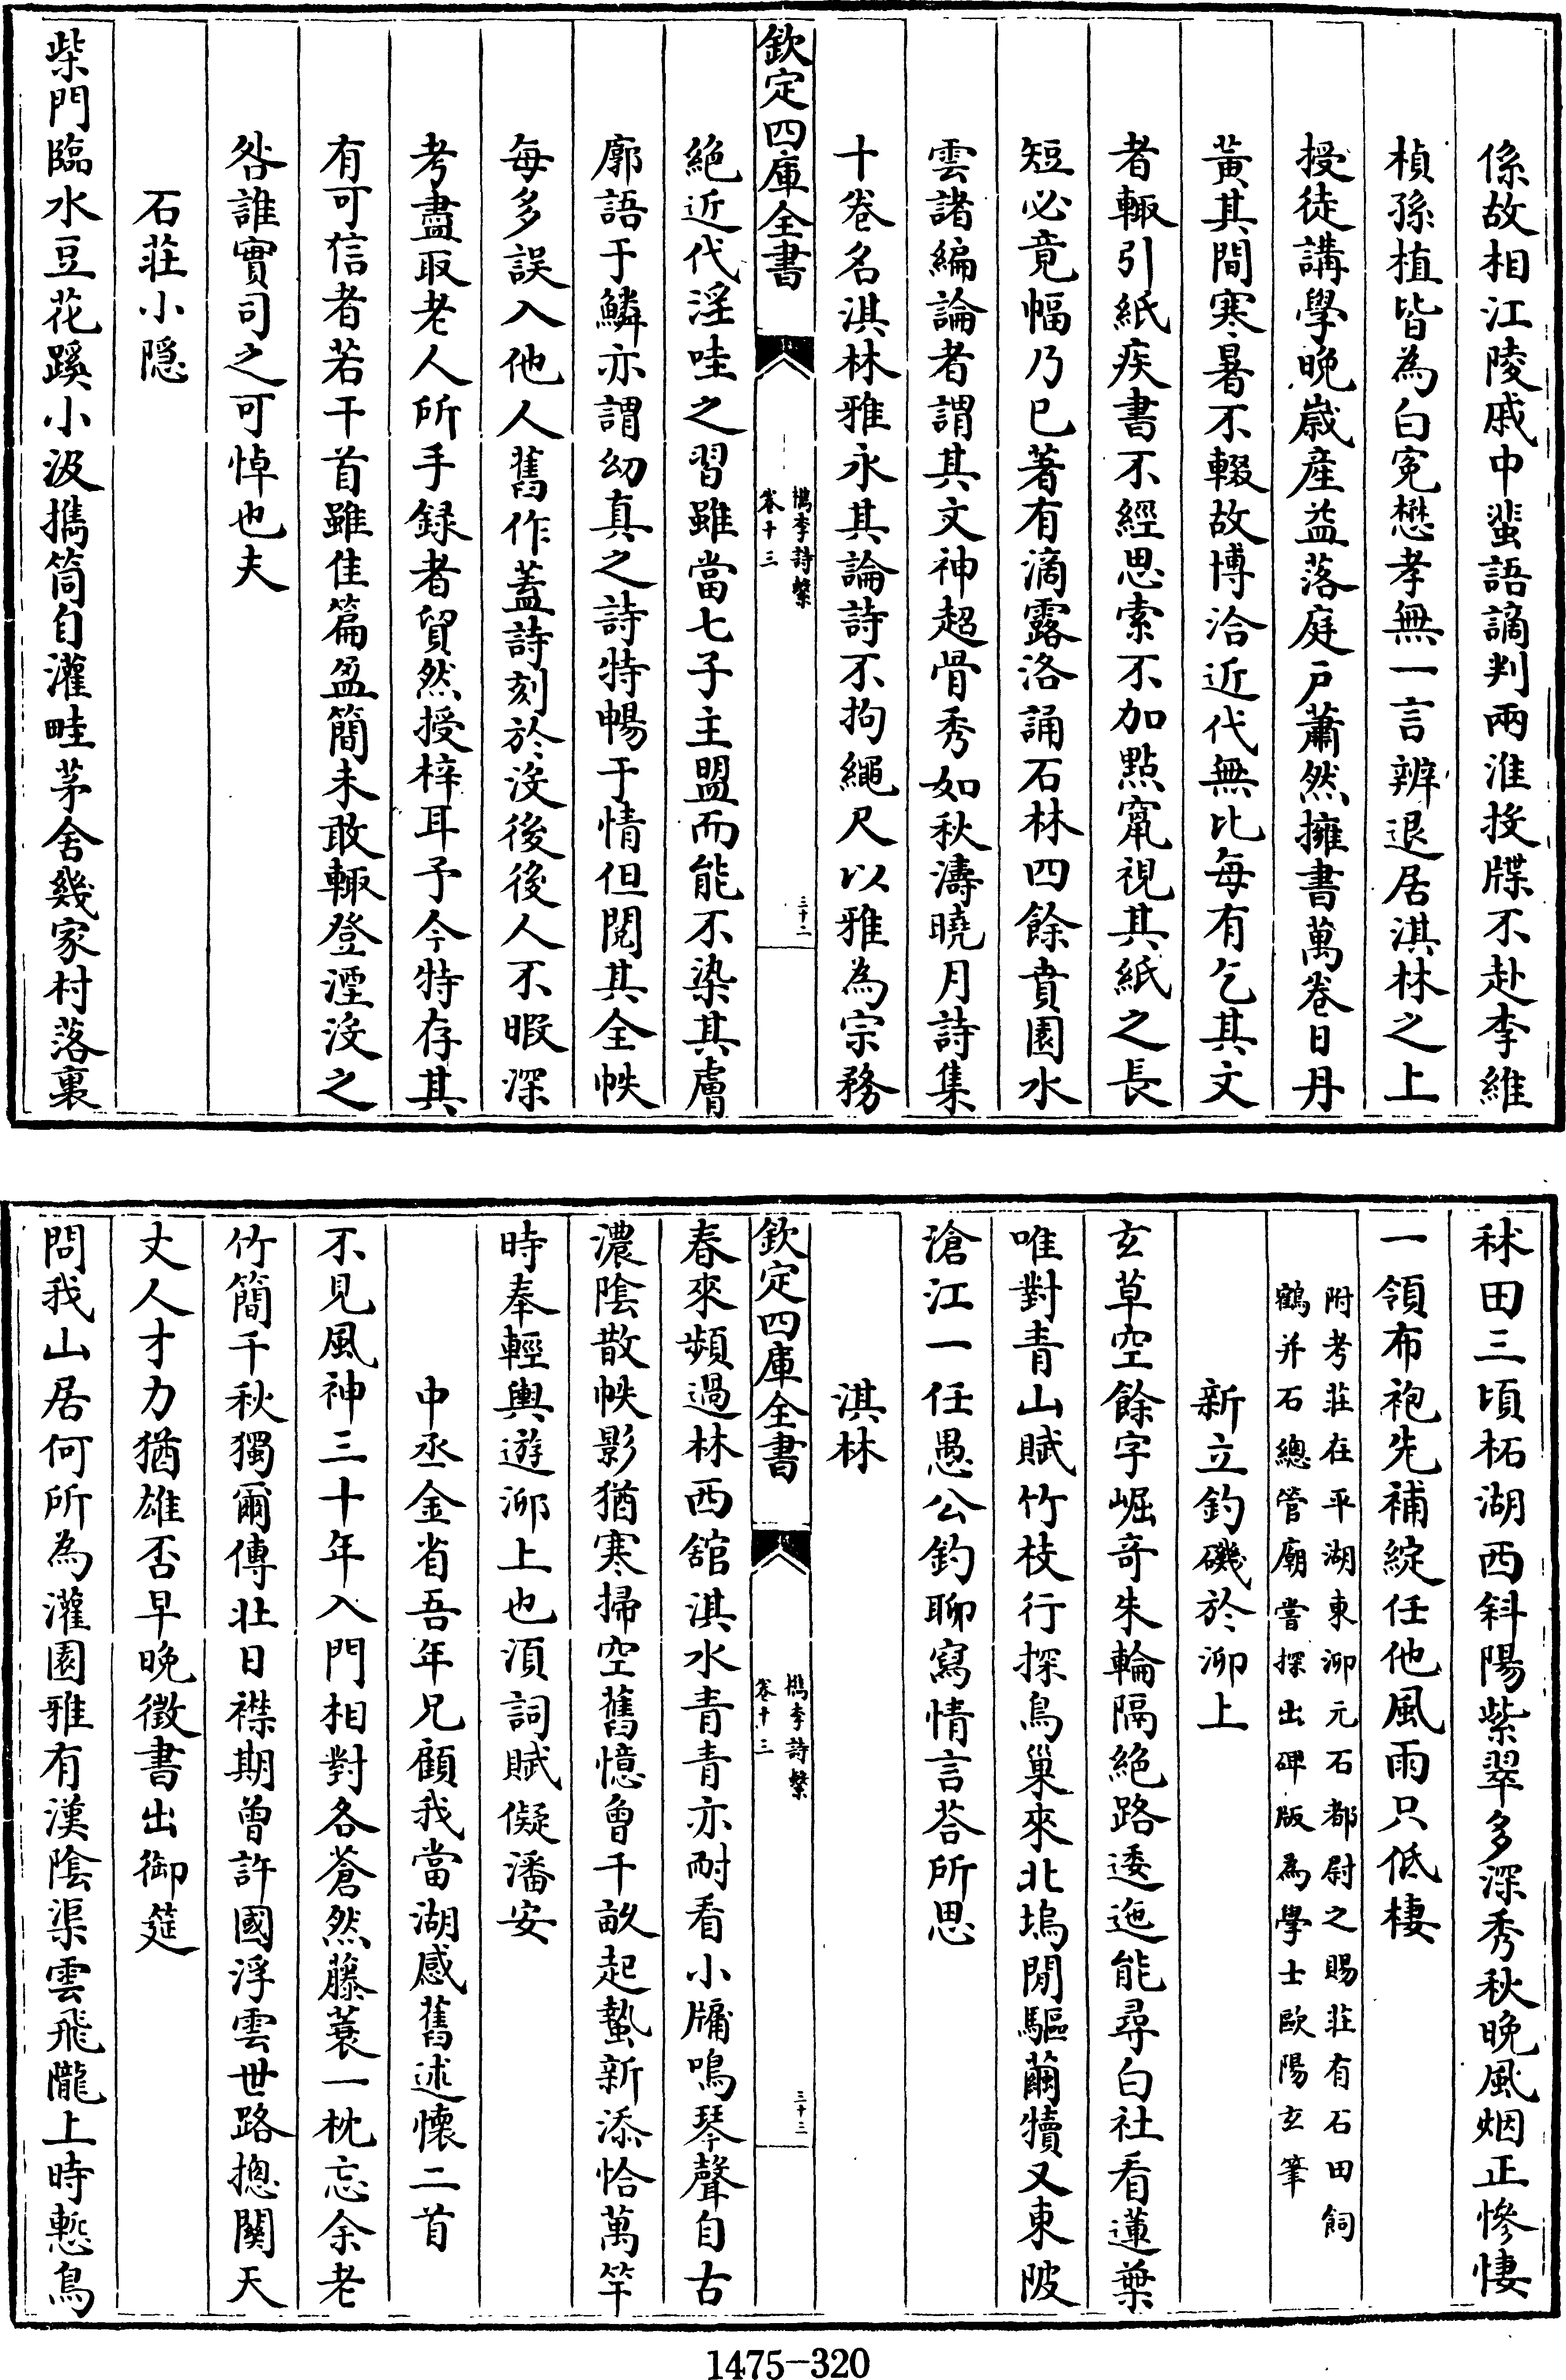 係故相江陵戚中蜚語謫判兩淮投牒不赴李維
楨孫植皆為白寃懋孝無一言辨退居淇林之上
授徒講學晚嵗産益落庭戸蕭然擁書萬卷日丹
黃其間寒暑不輟故博洽近代無比每有乞其文
者輙引紙疾書不經思索不加點竄視其紙之長
短必竟幅乃已著有滴露洛誦石林四餘賁園水
雲諸編論者謂其文神超骨秀如秋濤曉月詩集
十卷名淇林雅永其論詩不拘繩尺以雅為宗務
欽定四庫全書
檇李詩繫
卷十三
三十二
絕近代淫哇之習雖當七子主盟而能不染其膚
廓語于鱗亦謂幼真之詩特暢于情但閱其全帙
每多誤入他人舊作蓋詩刻於沒後後人不暇深
考盡取老人所手録者貿然授梓耳予今特存其
有可信者若干首雖佳篇盈簡未敢輙登湮沒之
咎誰實司之可悼也夫
石莊小隠
柴門臨水豆花蹊小汲擕筒自灌畦茅舍幾家村落裏
秫田三頃柘湖西斜陽紫翠多深秀秋晚風烟正慘悽
一領布袍先補綻任他風雨只低棲
附考莊在平湖東泖元石都尉之賜莊有石田飼
鶴并石總管廟嘗探出碑版為學士歐陽玄筆
新立釣磯於泖上
玄草空餘字崛奇朱輪隔絕路逶迤能尋白社看蓮葉
唯對青山賦竹枝行探鳥巢來北塢閒驅繭犢又東陂
滄江一任愚公釣聊寫情言荅所思
淇林
欽定四庫全書
檇李詩繫
卷十三
三十三
春來頻過林西舘淇水青青亦耐看小牖鳴琴聲自古
濃陰散帙影猶寒掃空舊憶曾千畝起蟄新添恰萬竿
時奉輕輿遊泖上也湏詞賦儗潘安
中丞金省吾年兄顧我當湖感舊述懷二首
不見風神三十年入門相對各蒼然藤蓑一枕忘余老
竹簡千秋獨爾傳壯日襟期曾許國浮雲世路摠關天
丈人才力猶雄否早晚徵書出御筵
問我山居何所為灌園雅有漢陰渠雲飛隴上時慙鳥
1475-320